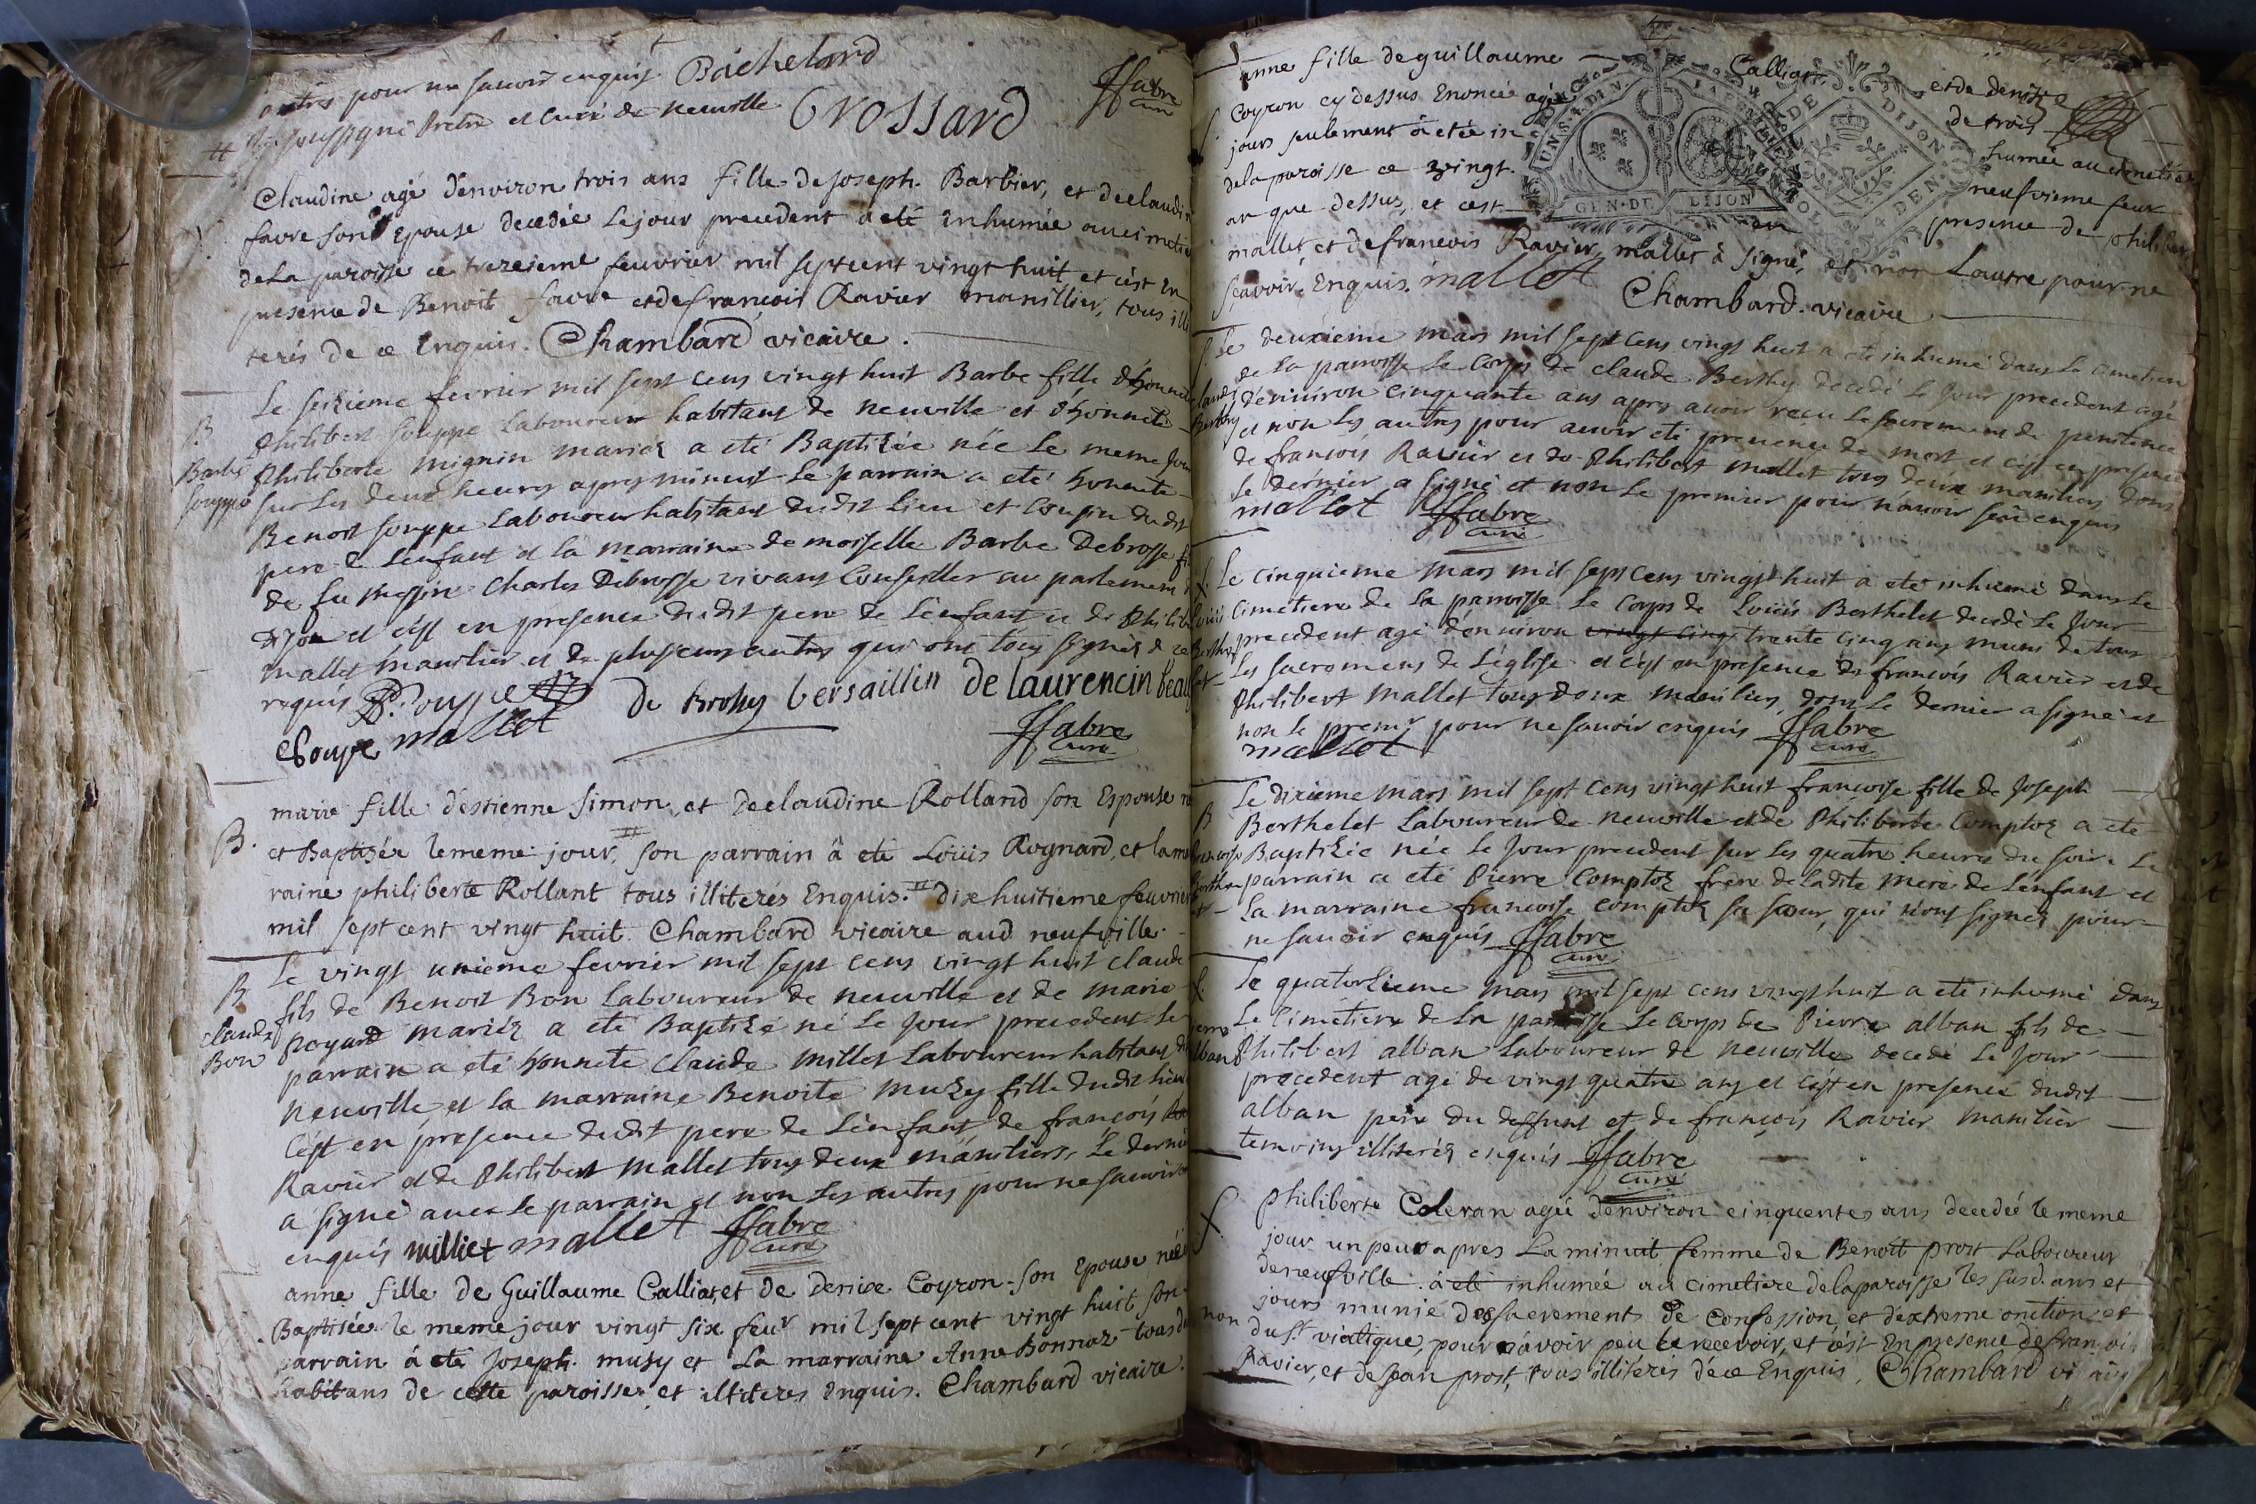 autres pour ne savoir enquis Bachelard
soussigné Pretre et Curé de neuville Grossard ffabre
curé
Claudine agé d'environ trois ans fille de Joseph Barbier, et de claudine
favre son Epouse decedée le jour precedent a eté inhumée au cimetie
de la paroisse ce trezeieme feuvrier mil sept cent vingt huit et c'est En
presence de Benoît favre et de françois Ravier manillier, tous illi
terés de ce Enquis. Chambard vicaire.
Le seizieme fevrier mil sept cens vingt huit Barbe fille d'honnete
B
Barbe
souppe
Philibert souppe laboureur habitant de neuville et d'honnete
Philiberte mignin mariéz a eté Baptizée née le meme jour
sur les deux heures apres minuit le parrain a eté honnete
Benoit souppe Laboureur habitant dudit lieu et cousin dudit
pere de l'enfant et la marraine demoiselle Barbe Debrosse fi
de feu messire Charles Debrosse vivant Conseiller au parlement d
dijon et c'est en presence dudit pere de l'enfant et de Philib
mallet manilier et de plusieurs autres qui ont tous signéz de ce
requis B. Souppe de Brosses bersaillin de laurencin beau
Csoupe mallet ffabre
curé
marie fille d'estienne Simon, et de claudine Rolland son Espouse né
B.
et Baptisée le meme jour, son parrain à eté Loüis Roynard, et la ma
raine philiberte Rollant tous illiterés Enquis. dix huitieme feuvrier
mil sept cent vingt huit. Chambard vicaire aud neufville.
Le vingt unieme fevrier mil sept cens vingt huit claude
B
Claude
Bon
fils de Benoit Bon Laboureur de neuville et de marie
Poyard mariéz a eté Baptizé né le jour precedent le
parrain a eté honnete Claude millet Laboureur habitant de
neuville et la marraine Benoite muzy fille dudit lieu
c'est en presence dudit pere de l'enfant de françois
Ravier et de Philibert mallet tous deux maniliers, le dernier
a signé avec le parrain et non les autres pour ne savoir
enquis milliet mallet ffabre
curé
anne fille de Guillaume Calliat, et de Denise Coyron son Epouse née
Baptisée le meme jour vingt six feur mil sept cent vingt huit son
parrain à eté Joseph musy et La marraine Anne Bonnaz tous d
habitans de cette paroisse et illiteres Enquis. Chambard vicaire.
anne fille de guillaume Calliat et de denise
Coyron cy dessus Enoncée agée de trois
jours seulement à etée inhumée au cimetiere
de la paroisse ce vingt neufvieme feur
an que dessus, et c'est en presence de philiber
mallet et de francois Ravier, mallet à signé, et non Lautre pour ne
sçavoir Enquis. mallet Chambard. vicaire
GEN. DE DIJON
Le deuxieme mars mil sept cens vingt huit a eté inhumé dans le cimetiere
Claude
Berthy
de la paroisse le corps de claude Berthy decedé le jour precedent agé
d'environ cinquante ans apres avoir reçu le sacrement de penitence
et non les autres pour avoir eté prevenu de mort et c'est en presence
de françois Ravier et de Philibert mallet tous deux maniliers dont
le dernier a signé et non le premier pour n'avoir sceu enquis
mallet ffabre
curé
Le cinquieme mars mil sept cens vingt huit a eté inhumé dans le
Louis
Berthe
let
cimetiere de la paroisse le corps de Louis Berthelet decedé le jour
precedent agé d'environ vingt cinq trente cinq ans muni de tous
les sacremens de l'église et c'est en presence de françois Ravier et de
Philibert mallet tous deux maniliers, dont le dernier a signé et
non le premr pour ne savoir enquis ffabre
mallet curé
Le dixieme mars mil sept cens vingt huit françoise fille de Joseph
B
françoise
Berthelet
Berthelet Laboureur de neuville et de Philiberte Comptoz a eté
Baptizée née le jour precedent sur les quatre heures du soir. Le
parrain a eté Pierre Comptoz frere de la dite mere de l'enfant et
La marraine françoise Comptoz sa sœur, qui n'ont signéz pour
ne savoir enquis ffabre
curé
Le quatorzieme mars mil sept cens vingt huit a eté inhumé dans
Pierre
alban
Le cimetiere de la paroisse le corps de Pierre alban fils de
Philibert alban Laboureur de neuville decedé le jour
precedent agé de vingt quatre ans et c'est en presence dudit
alban pere du deffunt et de françois Ravier manilier
temoins illiteréz enquis ffabre
curé
Philiberte Coleran agée d'environ cinquentes ans decedée le meme
jour un peu apres La minuit femme de Benoît prost Laboureur
de neufville à eté inhumée au cimetiere de la paroisse les susd. ans et
jours munie des sacrements de Confession, et d'extreme onction, et
non du st viatique, pour n'avoir peu le recevoir, et c'est En presence de françois
Ravier, et de Jean prost, tous illiterés de ce Enquis. Chambard vicaire